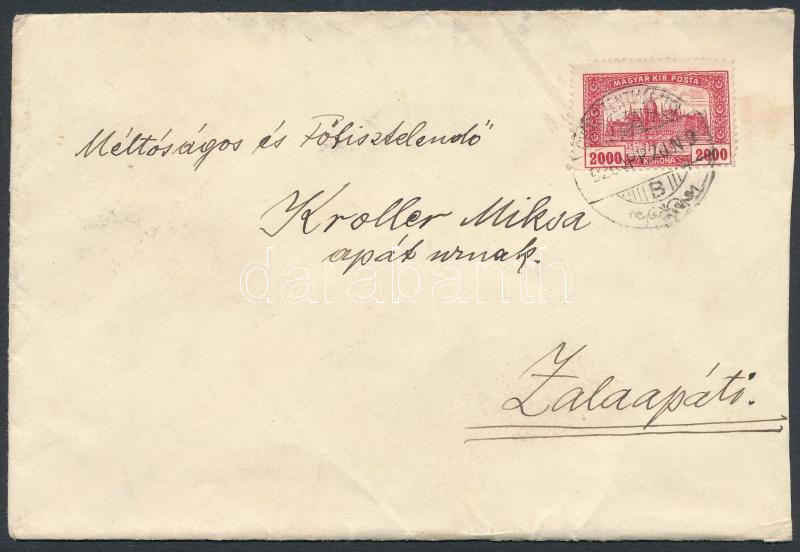 MAGYAR KIR. POSTA
2000 KORONA 2000
B
Méltóságos és Főtisztelendő
Kroller Miksa
apát urnak.
darabanth
Zalaapáti.